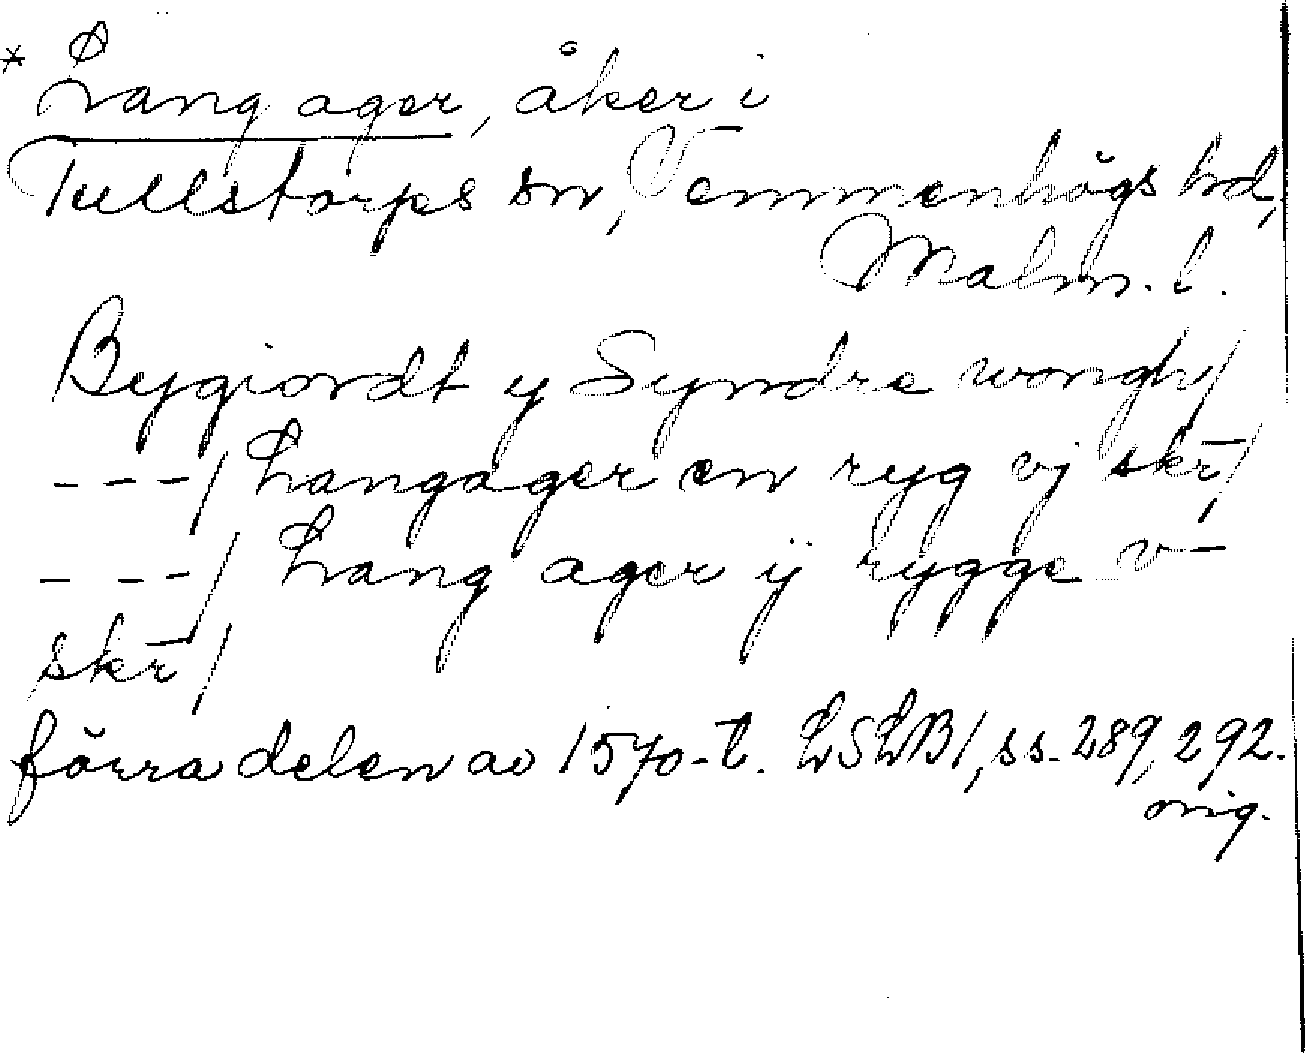 * Lang ager, åker i
Tullstorps sn, Vemmenhögs hd,
Malm. l.
Bygiordt y Syndre wongh/
---/ Langager en ryg vj skr̄/
---/ Lang ager ij rygge v-
skr̄/
förra delen av 1570-t. LSLB1, ss. 289, 292.
orig.